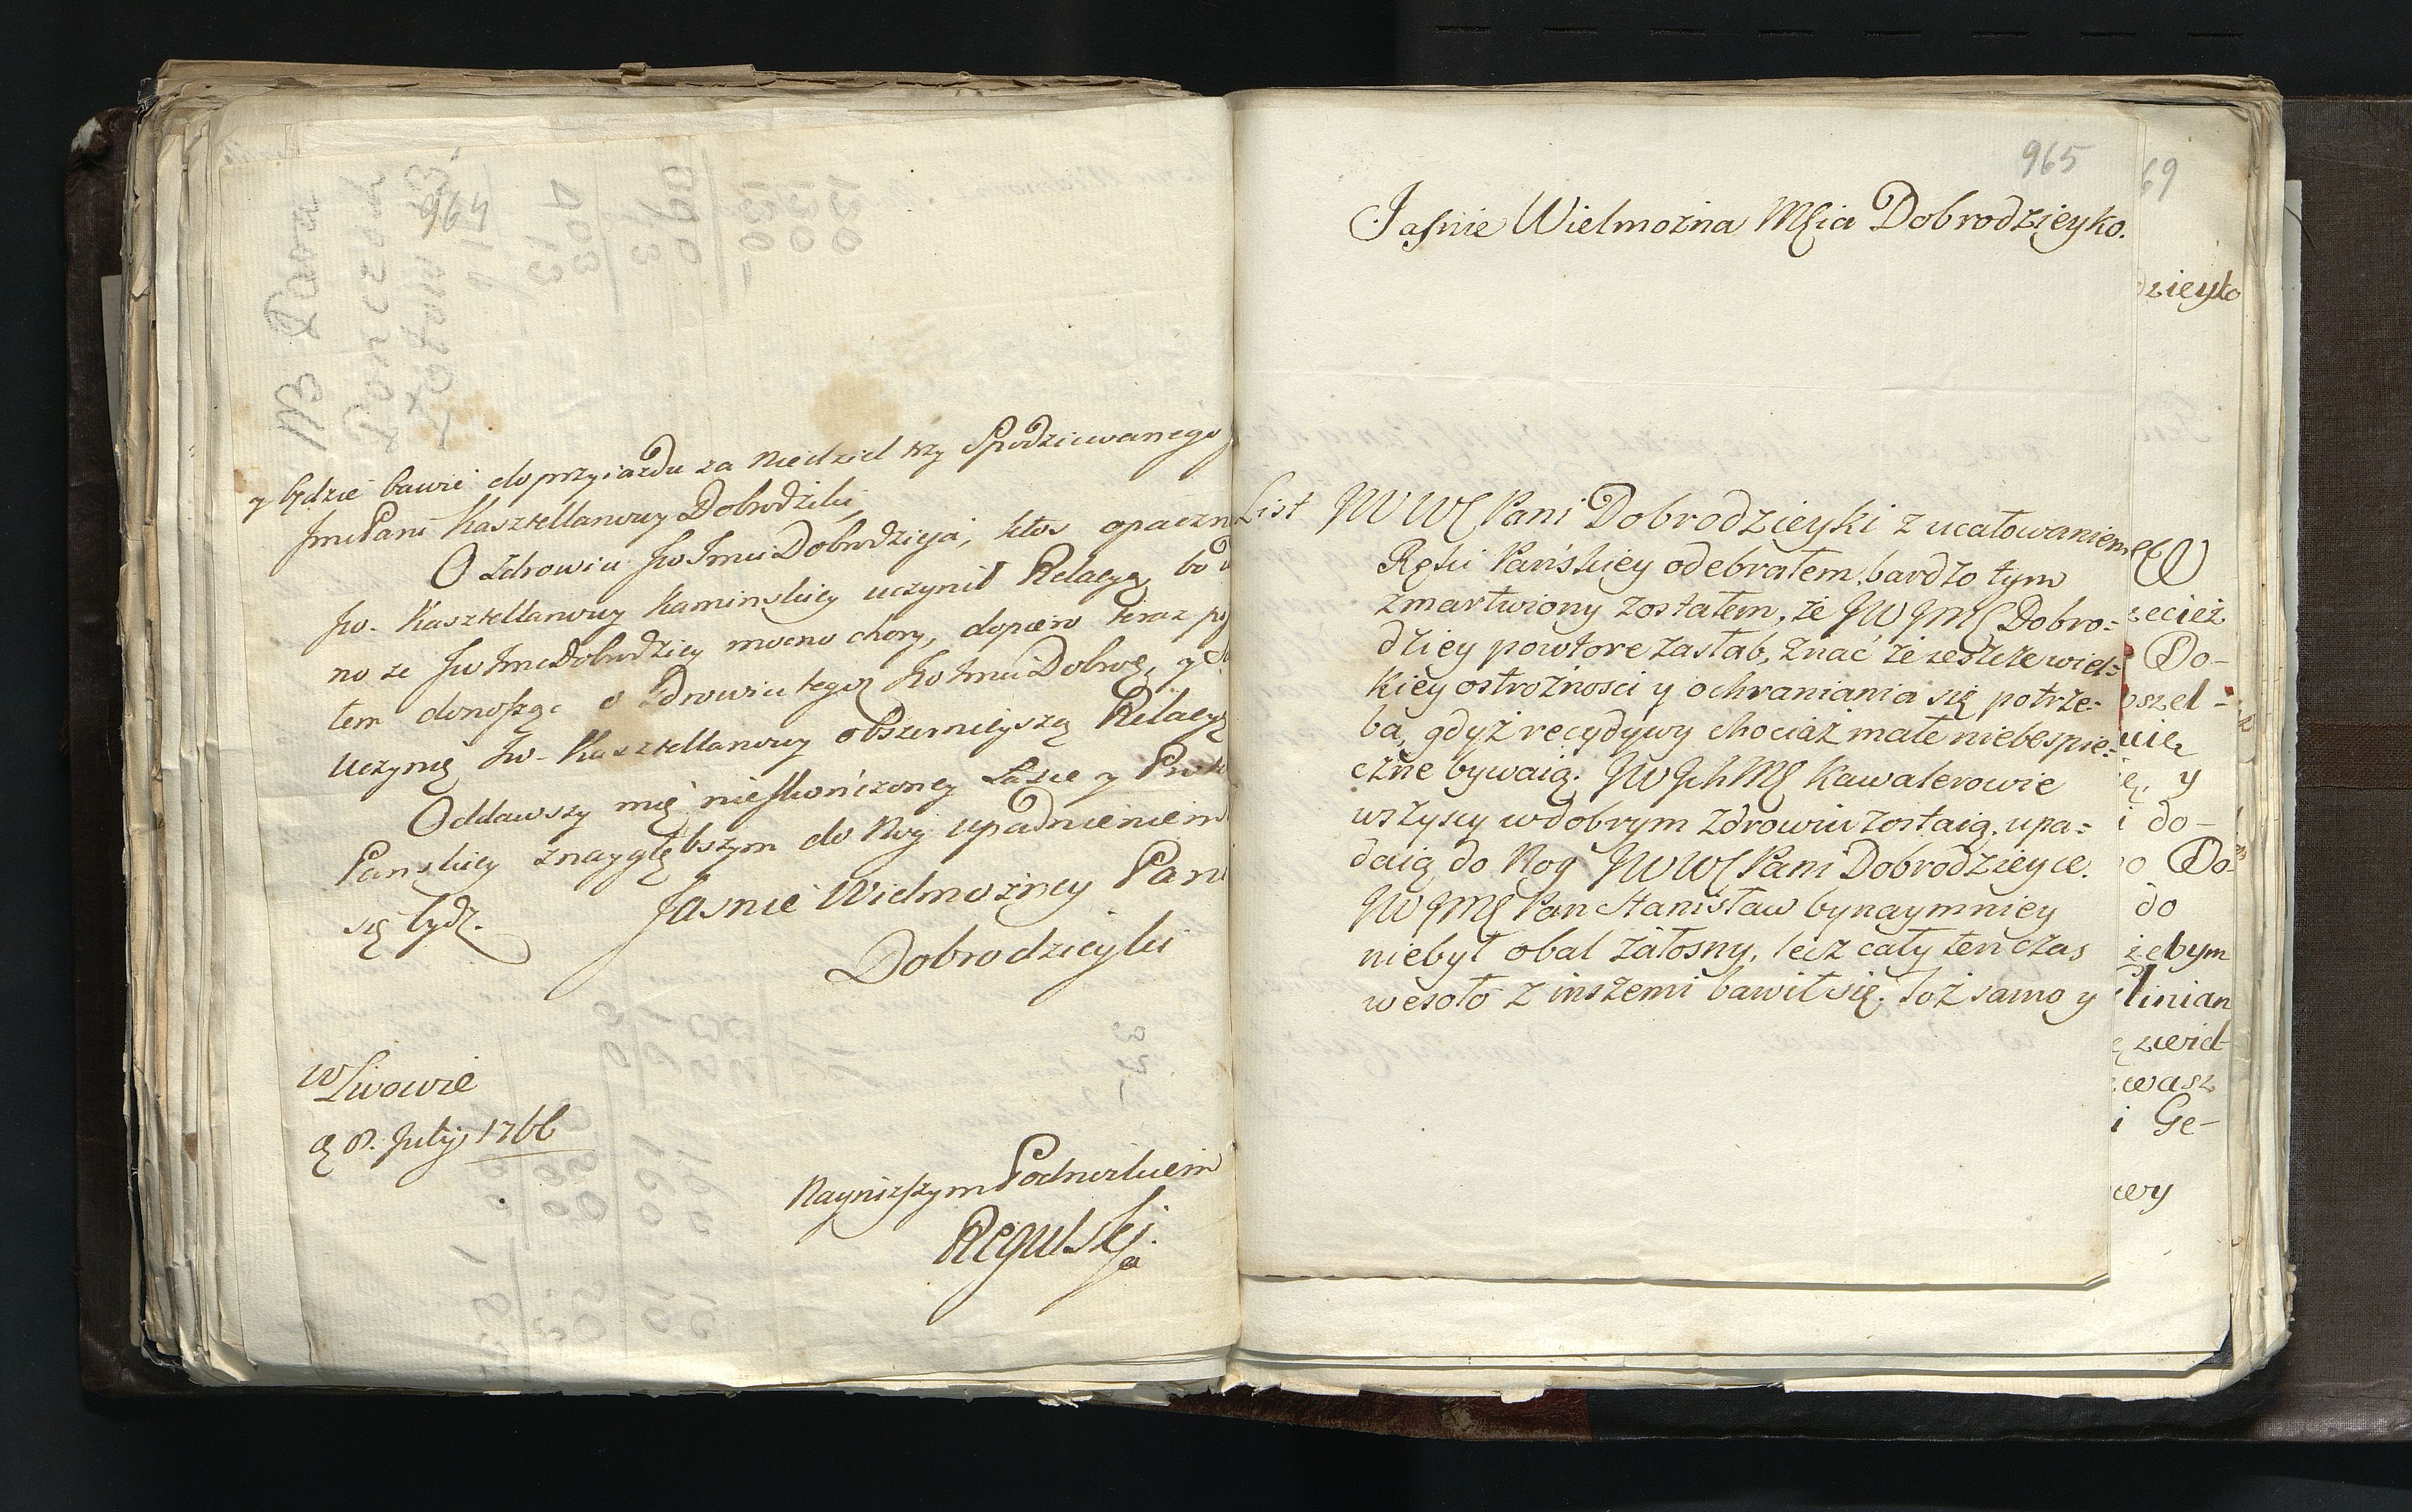 964
y będzie bawić do przyiazdu za Niedziel trzy Spodziewanego
JmcPani Kasztellanowey Dobrodziki,
O Zdrowiu Jw Jmci Dobrodzieja, ktos opaczn
Jw. Kasztellanowey Kaminskiey uczynił Relacyą, bo
no ze Jw Jmc Dobrodziey mocno chory, dopiero teraz
tem donosząc o Zdrowiu tegoz Jw Jmci Dobrę, y
uczynię Jw. Kasztellanowey obszernieyszą Relacyą
Oddawszy mię niesskończoney Łasce y
Panskiey znaygłębszym do Nog upadnieniem
się bydz.
Jasnie Wielmożney Pani
Dobrodzieyki
w Lwowie
d 8. July 1766
Nayniższym Podnożkiem
Regulski
965
Jaśnie Wielmożna MCia Dobrodzieyko.
List JWWC Pani Dobrodzieyki z ucałowaniem
Ręki Pańskiey odebrałem, bardzo tym
zmartwiony zostałem, że JWJMC Dobro=
dziey powtore zasłab, znać że ieszcze wiel=
kiey ostrożnosci y ochraniania się potrze=
ba, gdyż recydywy chociaż małe niebespie=
czne bywaią. JWJchMC Kawalerowie
wszyscy wdobrym zdrowiu zostaią. upa=
daią do Nog JWWC Pani Dobrodzieyce.
JWJMC Pan Stanisław bynaymniey
niebył obal żałosny, lecz cały ten czas
wesoło z inszemi bawił się. Toż samo y
69
dzieyko
zecież
Do-
szel-
y
do-
Do-
do
żebym
linian
wasz
i Ge-